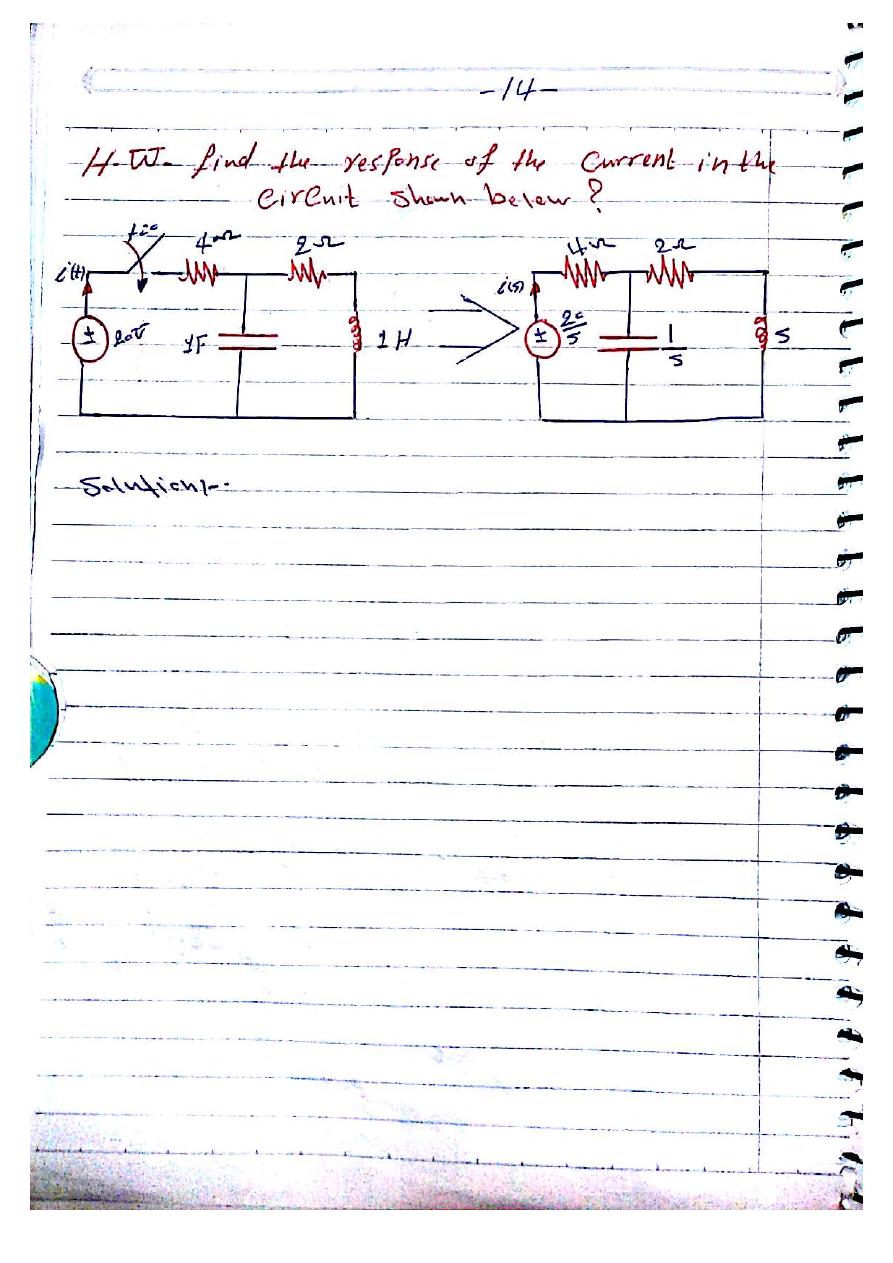 -14-
H.W. find the response of the current in the
circuit shown below ?
t=0
4Ω 2Ω
i(t)
20V 1F 1H
4Ω 2Ω
i(s)
20/s 1/s s
Solution:-